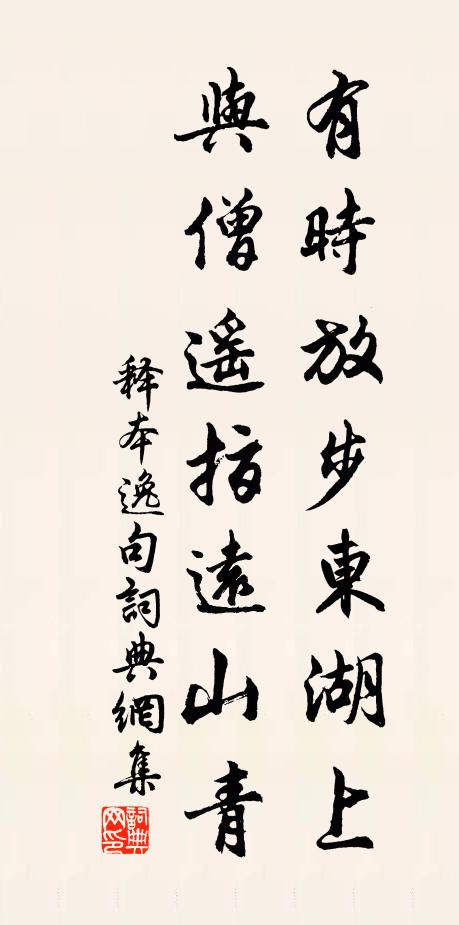 有時放步東湖上
與僧遥指遠山青
释本逸句詞典網集
詞典网印